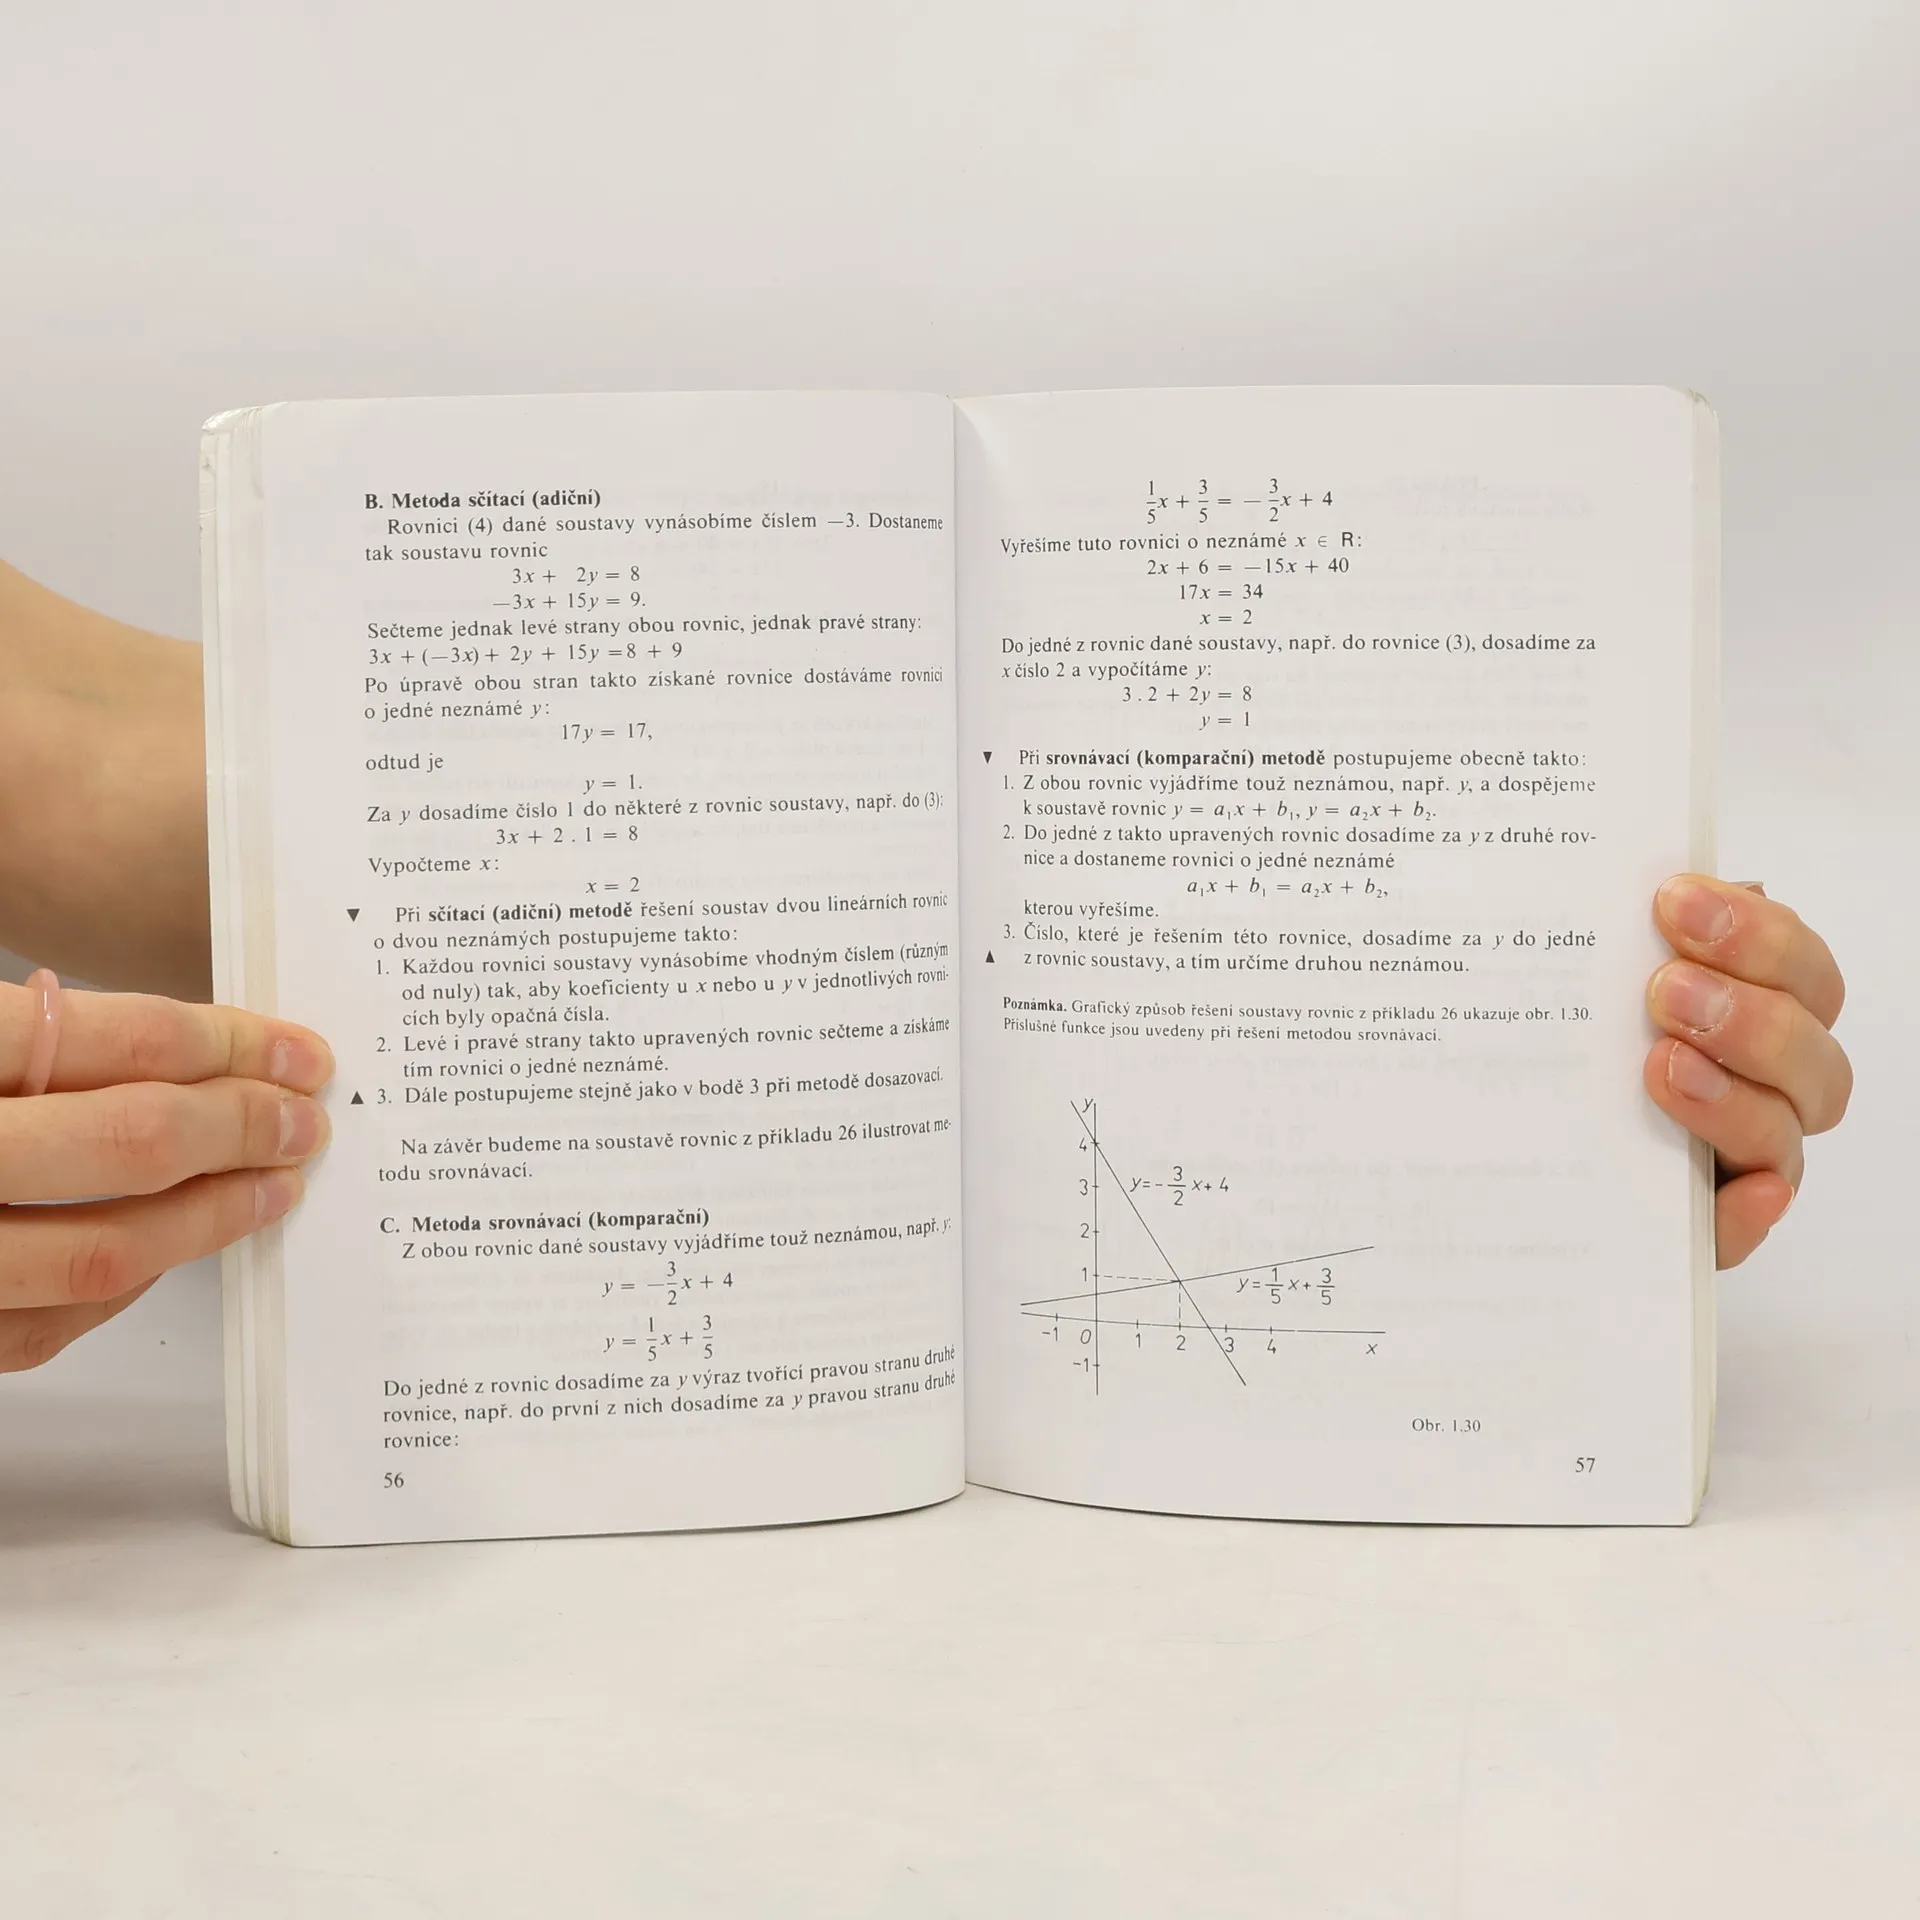 B. Metoda sčítací (adiční)
Rovnici (4) dané soustavy vynásobíme číslem —3. Dostaneme
tak soustavu rovnic
3x + 2y = 8
—3x + 15y = 9.
Sečteme jednak levé strany obou rovnic, jednak pravé strany:
3x + (—3x) + 2y + 15y = 8 + 9
Po úpravě obou stran takto získané rovnice dostáváme rovnici
o jedné neznámé y:
17y = 17,
odtud je
y = 1.
Za y dosadíme číslo 1 do některé z rovnic soustavy, např. do (3):
3x + 2 . 1 = 8
Vypočteme x:
x = 2
▼ Při sčítací (adiční) metodě řešení soustav dvou lineárních rovnic
o dvou neznámých postupujeme takto:
1. Každou rovnici soustavy vynásobíme vhodným číslem (různým
od nuly) tak, aby koeficienty u x nebo u y v jednotlivých rovni-
cích byly opačná čísla.
2. Levé i pravé strany takto upravených rovnic sečteme a získáme
tím rovnici o jedné neznámé.
▲ 3. Dále postupujeme stejně jako v bodě 3 při metodě dosazovací.
Na závěr budeme na soustavě rovnic z příkladu 26 ilustrovat me-
todu srovnávací.
C. Metoda srovnávací (komparační)
Z obou rovnic dané soustavy vyjádříme touž neznámou, např. y:
y = —3/2 x + 4
y = 1/5 x + 3/5
Do jedné z rovnic dosadíme za y výraz tvořící pravou stranu druhé
rovnice, např. do první z nich dosadíme za y pravou stranu druhé
rovnice:
56
1/5 x + 3/5 = — 3/2 x + 4
Vyřešíme tuto rovnici o neznámé x ∈ R:
2x + 6 = —15x + 40
17x = 34
x = 2
Do jedné z rovnic dané soustavy, např. do rovnice (3), dosadíme za
x číslo 2 a vypočítáme y:
3 . 2 + 2y = 8
y = 1
▼ Při srovnávací (komparační) metodě postupujeme obecně takto:
1. Z obou rovnic vyjádříme touž neznámou, např. y, a dospějeme
k soustavě rovnic y = a₁x + b₁, y = a₂x + b₂.
2. Do jedné z takto upravených rovnic dosadíme za y z druhé rov-
nice a dostaneme rovnici o jedné neznámé
a₁x + b₁ = a₂x + b₂,
kterou vyřešíme.
3. Číslo, které je řešením této rovnice, dosadíme za y do jedné
▲ z rovnic soustavy, a tím určíme druhou neznámou.
Poznámka. Grafický způsob řešení soustavy rovnic z příkladu 26 ukazuje obr. 1.30.
Příslušné funkce jsou uvedeny při řešení metodou srovnávací.
y
4
3 y=-3/2 x+4
2
1 y=1/5 x+3/5
-1 0 1 2 3 4 x
-1
Obr. 1.30
57